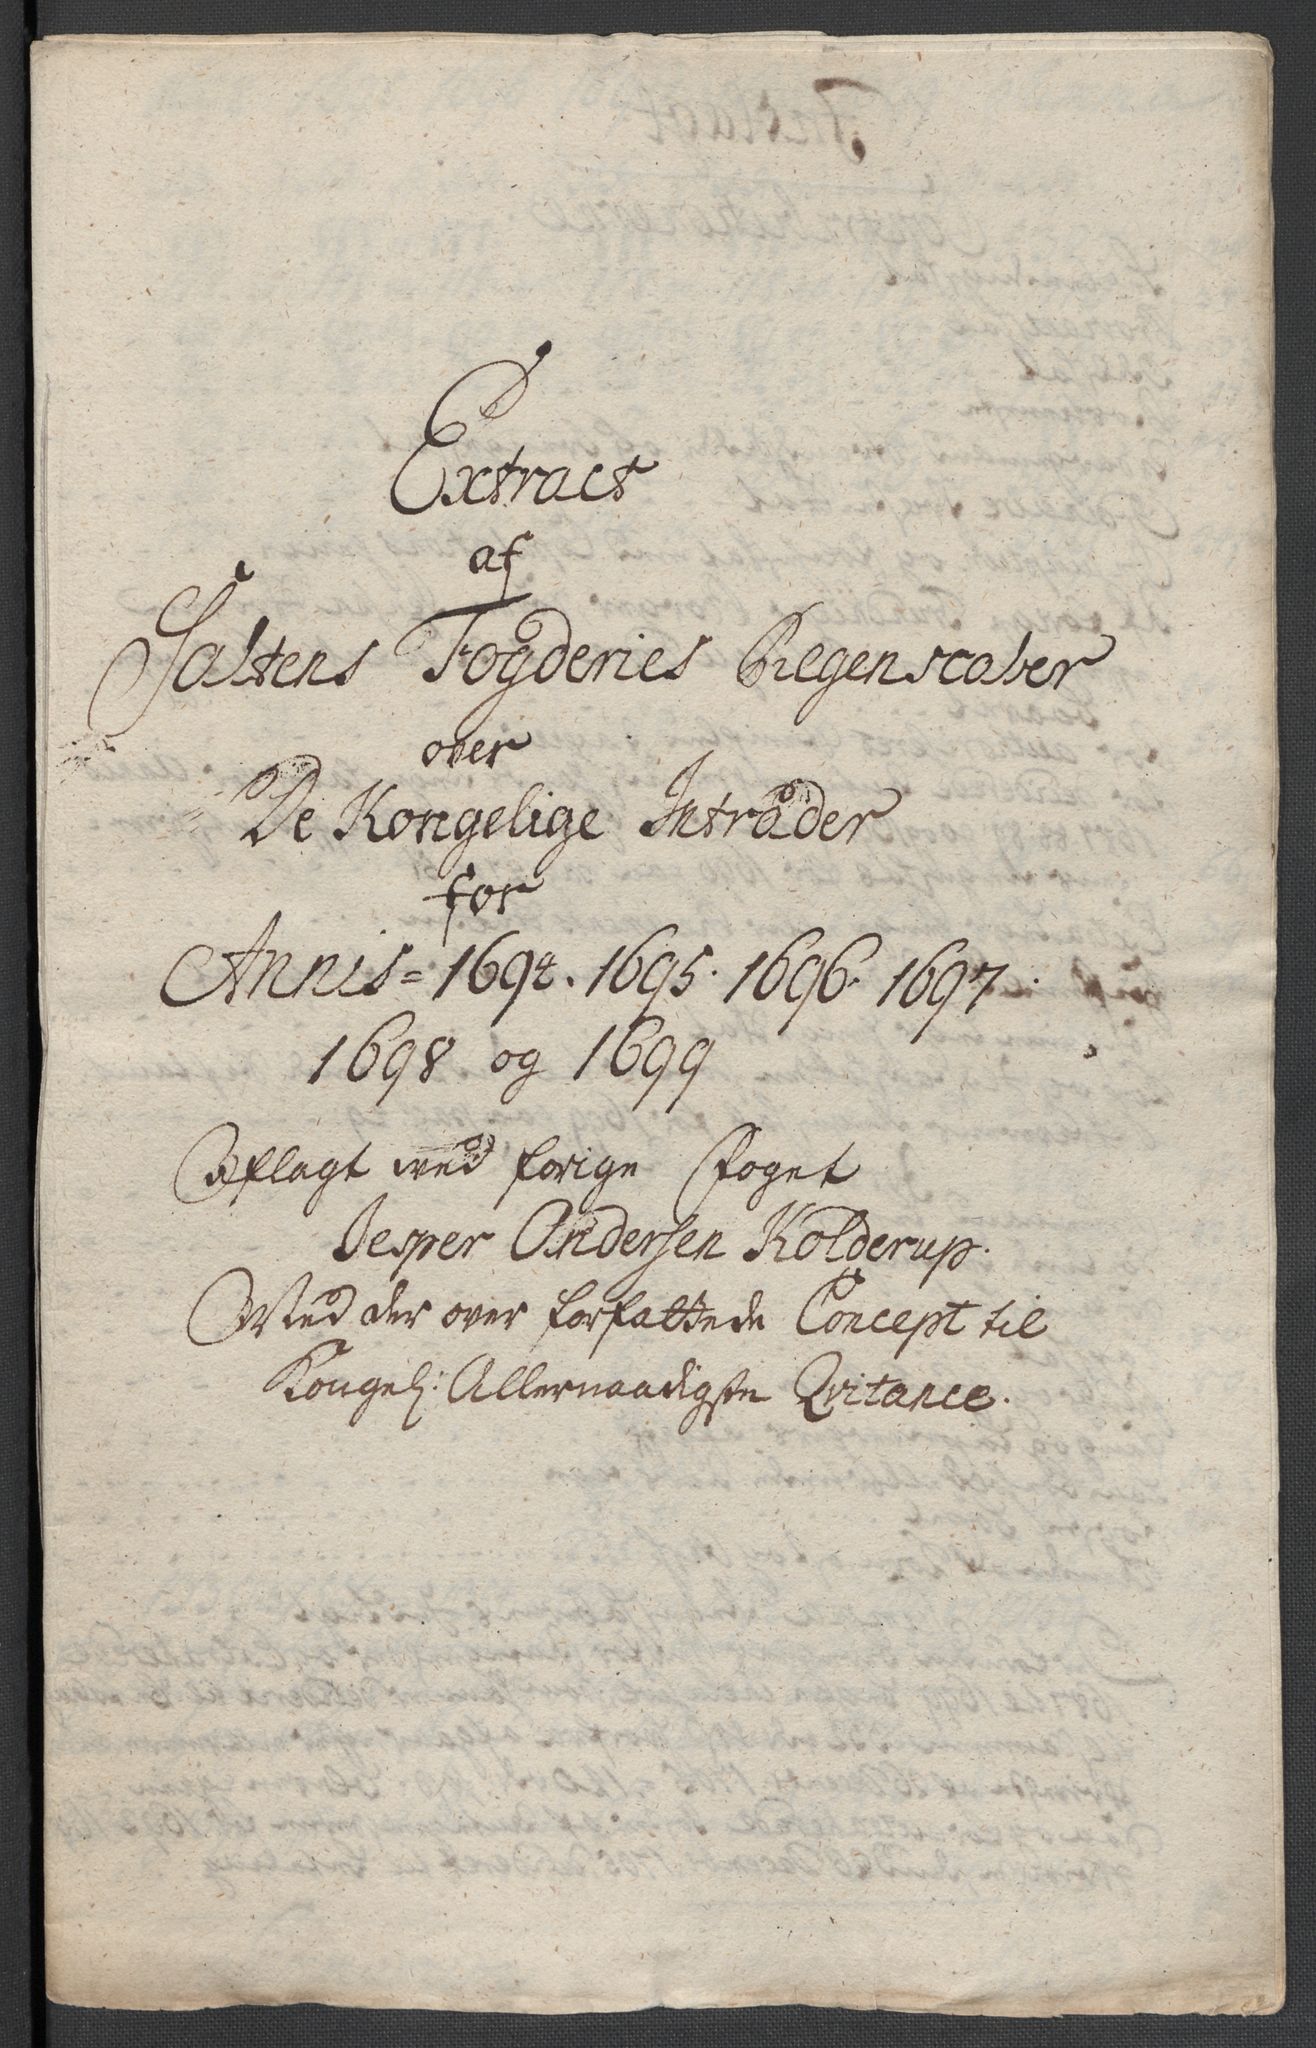 Extract
af
Saltens Fogderies Regenscaber
over
De Kongelige Inträder
for
Annis = 1694. 1695. 1696. 1697.
1698 og 1699
Aflagt ved forige Foget
Jesper Andersen Kolderup.
Med der over forfattede Concept til
Kongel: Allernaadigste Qvitance.